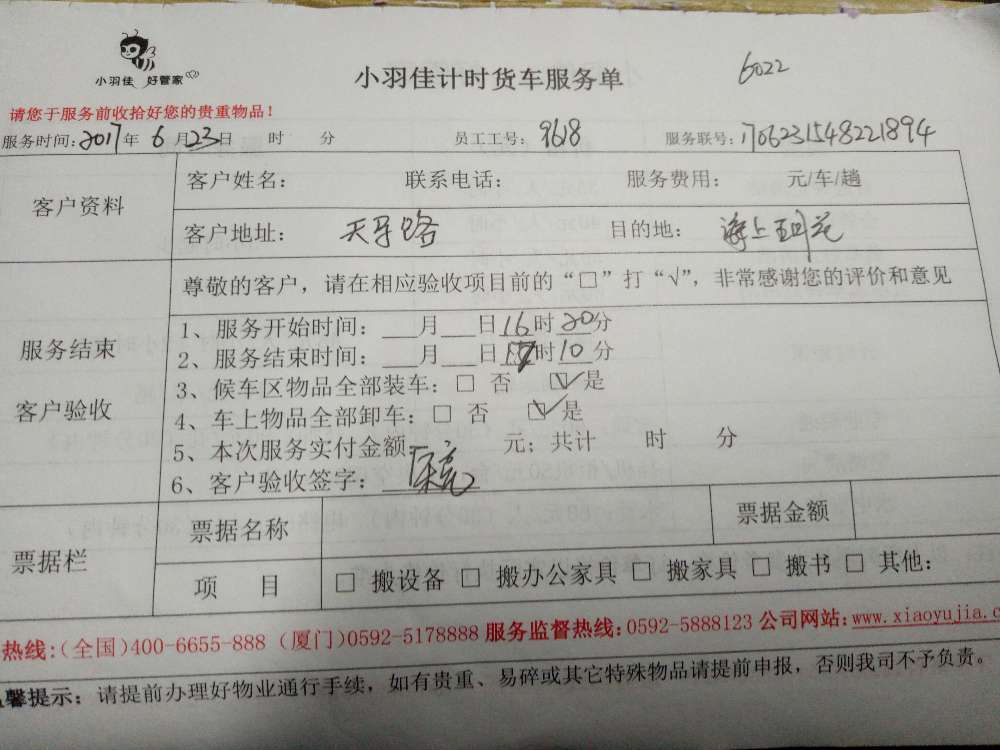 小羽佳 好管家
小羽佳计时货车服务单
6022
请您于服务前收拾好您的贵重物品！
服务时间：2017年 6 月23日 时 分 员工工号：9618 服务联号：1706231548221894
客户资料
客户姓名： 联系电话： 服务费用： 元/车/趟
客户地址： 天马路 目的地： 海上五月花
服务结束
客户验收
尊敬的客户，请在相应验收项目前的“□”打“√”，非常感谢您的评价和意见
1、服务开始时间：___月___日16时20分
2、服务结束时间：___月___日17时10分
3、候车区物品全部装车：□ 否 ☑是
4、车上物品全部卸车：□ 否 ☑是
5、本次服务实付金额 元；共计 时 分
6、客户验收签字：
票据栏
票据名称 票据金额
项 目 □ 搬设备 □ 搬办公家具 □ 搬家具 □ 搬书 □ 其他：
热线：（全国）400-6655-888（厦门）0592-5178888 服务监督热线：0592-5888123 公司网站：www.xiaoyujia.c
馨提示：请提前办理好物业通行手续，如有贵重、易碎或其它特殊物品请提前申报，否则我司不予负责。